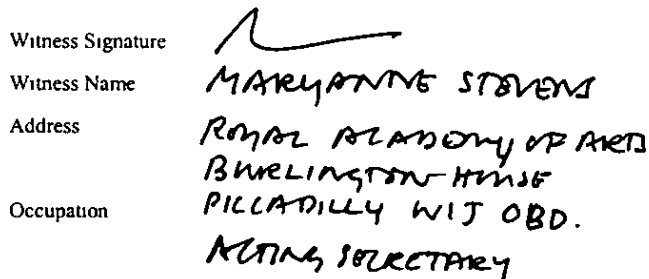 Witness Signature
Witness Name MARYANNE STEVENS
Address ROYAL ACADEMY OF ARTS
BURLINGTON HOUSE
Occupation PICCADILLY W1J OBD.
ACTING SECRETARY